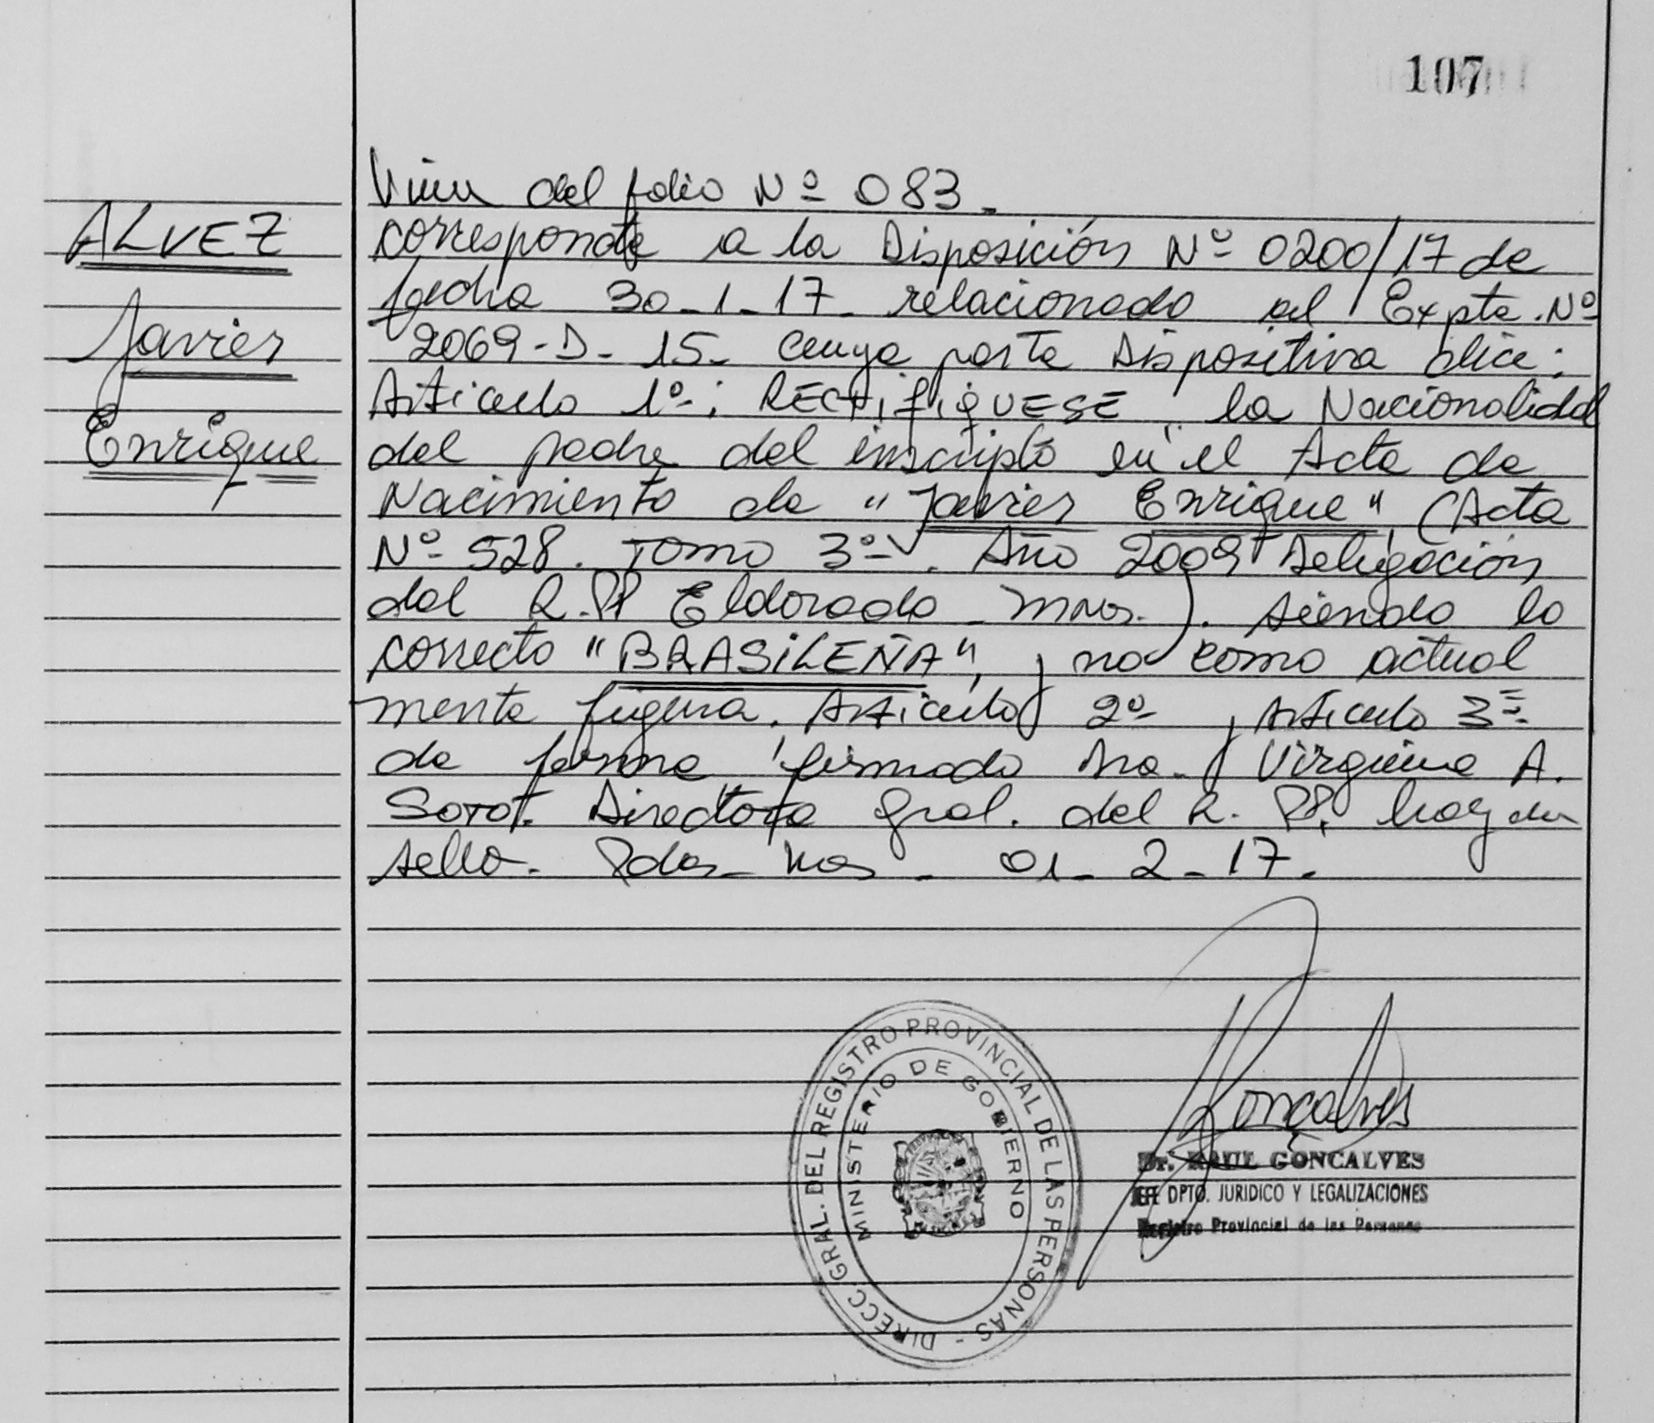 107
ALVEZ
Javier
Enrique
Viene del folio Nº 083.
corresponde a la Disposición Nº 0200/17 de
fecha 30-1-17 relacionado al Expte. Nº
2069-D-15- cuya parte Dispositiva dice:
Articulo 1º: RECTIFIQUESE la Nacionalidad
del padre del inscripto en el Acta de
Nacimiento de "Javier Enrique" (Acta
Nº 528. Tomo 3º. Año 2009 Delegación
del R.P.P Eldorado - Mnes.). siendo lo
correcto "BRASILEÑA", y no como actual
mente figura. Articulo 2º y Articulo 3º
de forma, firmado Dra. Virginia A.
Soto. Directora Gral. del R. PP. hay un
sello. Pdas. Mnes. 01-2-17.
DIRECC. GRAL. DEL REGISTRO PROVINCIAL DE LAS PERSONAS -
MINISTERIO DE GOBIERNO
Gonçalves
Dr. RAUL GONCALVES
JEFE DPTO. JURIDICO Y LEGALIZACIONES
Registro Provincial de las Personas